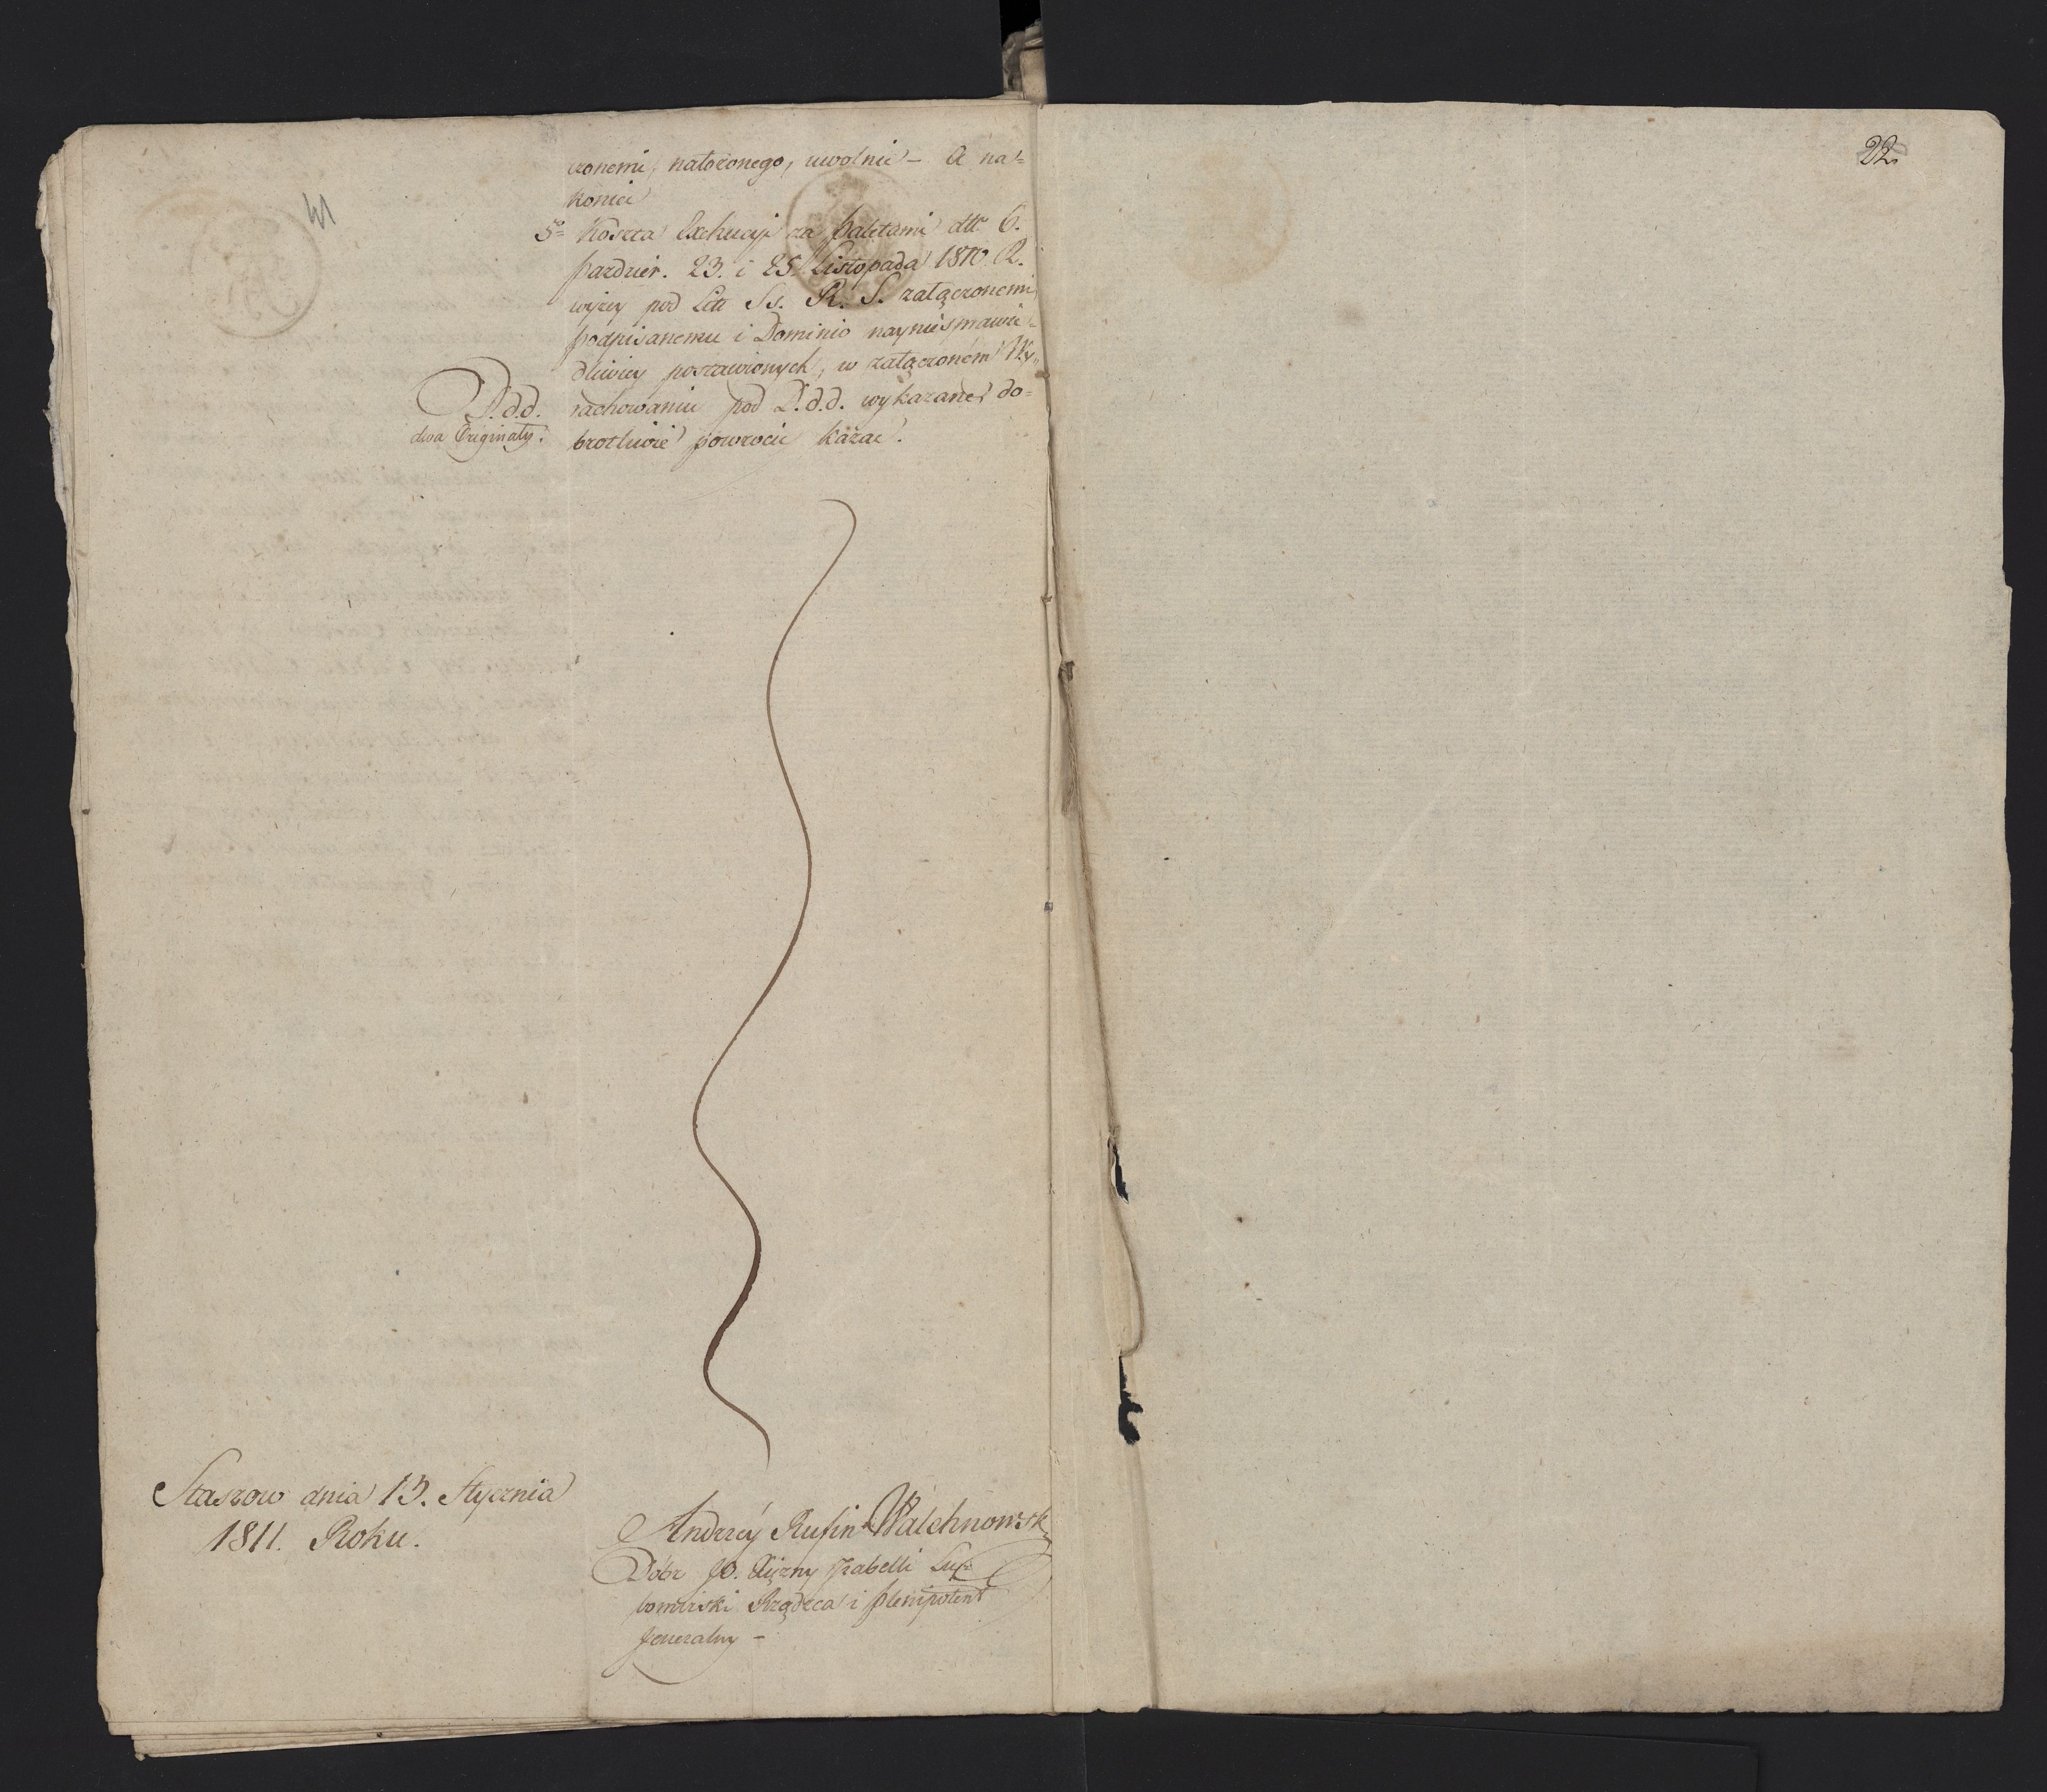 41
czonemi, nałożonego, uwolnić – A na=
koniec
5to Koszta Exekucyi za paletami dtto 6.
Paździer. 23. i 25. Listopada 1810. R.
wyżey pod Litt Ss. R. S. załączonemi
podpisanemu i Dominio nayniesprawie=
dliwiey postawionych, w załączoném Wy=
rachowaniu pod D.d.d. wykazane do=
brotliwie powrócić kazać.
D.d.d.
dwa Originały.
Staszow dnia 13. Stycznia
1811. Roku.
Andrzey Rufin Walchnowski
Dóbr JO. Xiężny Izabelli Lu=
bomirski Rządzca i Plenipotent
Jeneralny –
22